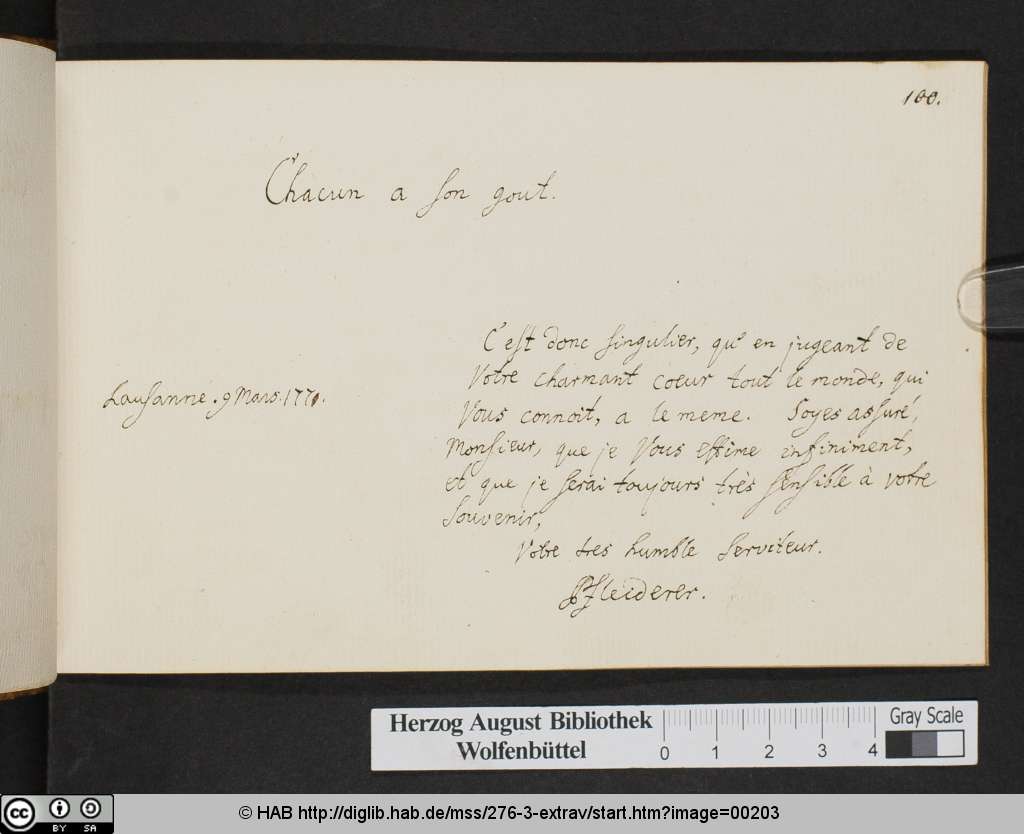 100.
Chacun a son gout.
C'est donc singulier, qu'en jugeant de
Votre charmant coeur tout le monde, qui
Vous connoit, a le meme. Soyes assuré,
Monsieur, que je Vous estime infiniment,
et que je serai toujours très sensible à votre
Souvenir,
Votre tres humble Serviteur.
Pfleiderer.
Lausanne. 9 Mars. 1771.
Herzog August Bibliothek
Wolfenbüttel
0 1 2 3 4
Gray Scale
cc BY SA
© HAB http://diglib.hab.de/mss/276-3-extrav/start.htm?image=00203